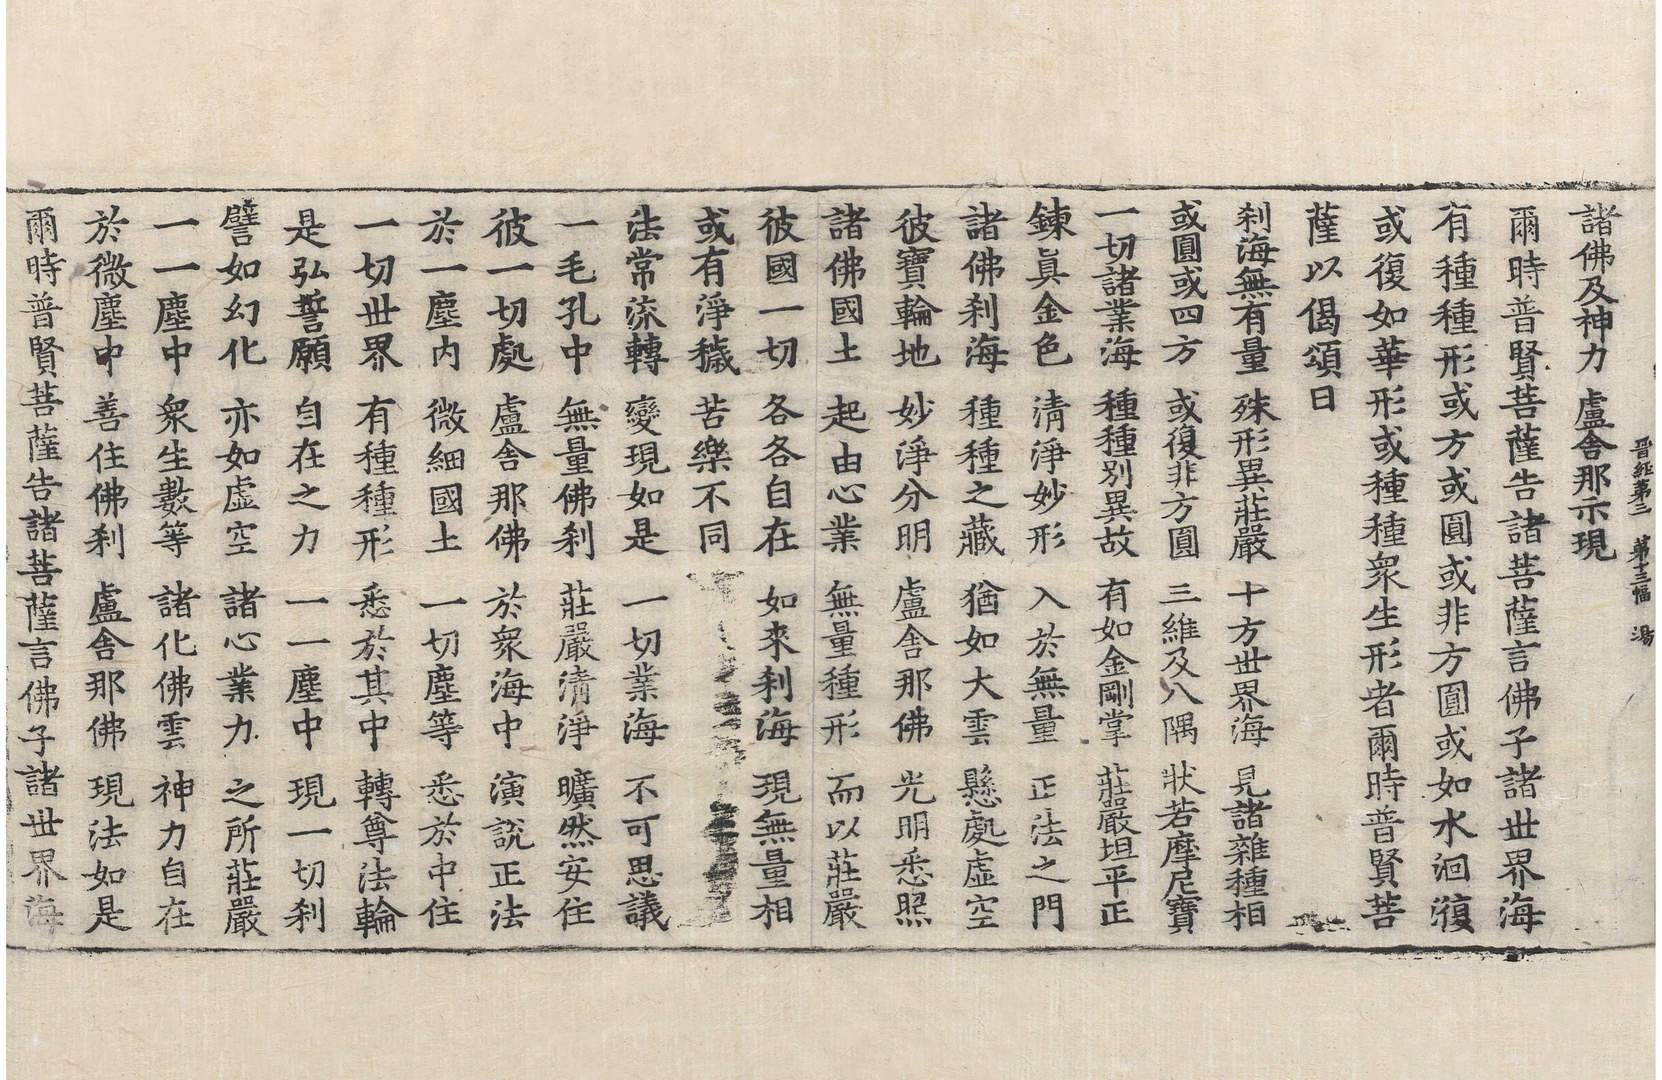 晉經第三　第十三幅　湯
諸佛及神力　盧舍那示現
爾時普賢菩薩告諸菩薩言佛子諸世界海
有種種形或方或圓或非方圓或如水洄澓
或復如華形或種種衆生形者爾時普賢菩
薩以偈頌曰
刹海無有量　殊形異莊嚴　十方世界海　見諸雜種相
或圓或四方　或復非方圓　三維及八隅　狀若摩尼寶
一切諸業海　種種別異故　有如金剛掌　莊嚴坦平正
鍊眞金色　清淨妙形　入於無量　正法之門
諸佛刹海　種種之藏　猶如大雲　懸處虛空
彼寶輪地　妙淨分明　盧舍那佛　光明悉照
諸佛國土　起由心業　無量種形　而以莊嚴
彼國一切　各各自在　如來刹海　現無量相
或有淨穢　苦樂不同
法常流轉　變現如是　一切業海　不可思議
一毛孔中　無量佛刹　莊嚴清淨　曠然安住
彼一切處　盧舍那佛　於衆海中　演說正法
於一塵内　微細國土　一切塵等　悉於中住
一切世界　有種種形　悉於其中　轉尊法輪
是弘誓願　自在之力　一一塵中　現一切刹
譬如幻化　亦如虛空　諸心業力　之所莊嚴
一一塵中　衆生數等　諸化佛雲　神力自在
於微塵中　善住佛刹　盧舍那佛　現法如是
爾時普賢菩薩告諸菩薩言佛子諸世界海